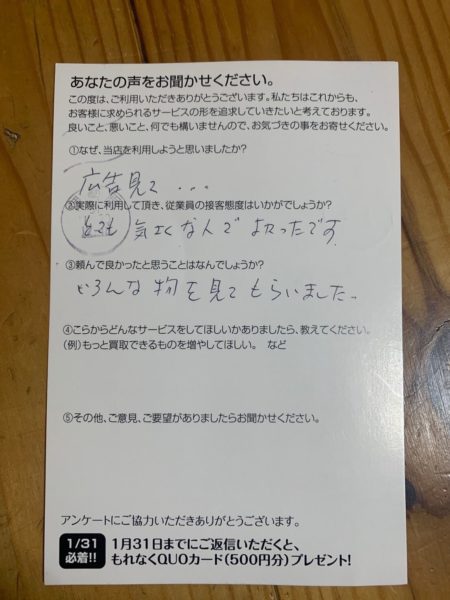 あなたの声をお聞かせください。
この度は、ご利用いただきありがとうございます。私たちはこれからも、
お客様に求められるサービスの形を追求していきたいと考えております。
良いこと、悪いこと、何でも構いませんので、お気づきの事をお寄せください。
①なぜ、当店を利用しようと思いましたか?
広告見て...
②実際に利用して頂き、従業員の接客態度はいかがでしょうか?
とても 気さくな人で よかったです
③頼んで良かったと思うことはなんでしょうか?
いろんな物を見てもらいました。
④こらからどんなサービスをしてほしいかありましたら、教えてください。
(例)もっと買取できるものを増やしてほしい。 など
⑤その他、ご意見、ご要望がありましたらお聞かせください。
アンケートにご協力いただきありがとうございます。
1/31
必着!!
1月31日までにご返信いただくと、
もれなくQUOカード(500円分)プレゼント!